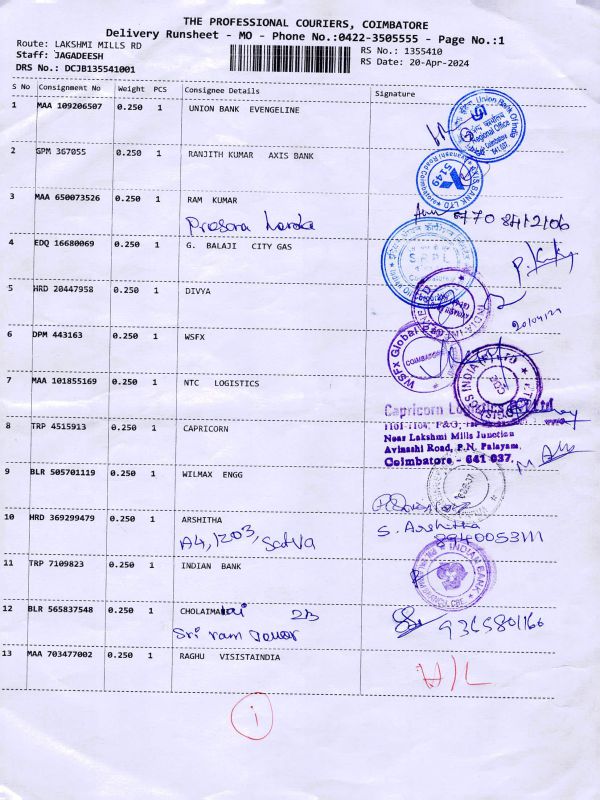 THE PROFESSIONAL COURIERS, COIMBATORE
Delivery Runsheet - MO - Phone No.:0422-3505555 - Page No.:1
Route: LAKSHMI MILLS RD
RS No.: 1355410
Staff: JAGADEESH
RS Date: 20-Apr-2024
DRS No.: DCJB135541001
S No Consignment No Weight PCS Consignee Details Signature
1 MAA 109206507 0.250 1 UNION BANK EVENGELINE
2 GPM 367055 0.250 1 RANJITH KUMAR AXIS BANK
3 MAA 650073526 0.250 1 RAM KUMAR
4 EDQ 16680069 0.250 1 G. BALAJI CITY GAS
SRPL
5 HRD 20447958 0.250 1 DIVYA
20/04/24
6 DPM 443163 0.250 1 WSFX
WSFx Global Pay
COIMBATORE
7 MAA 101855169 0.250 1 NTC LOGISTICS
Capricorn
8 TRP 4515913 0.250 1 CAPRICORN
Near Lakshmi Mills Junction
Avinashi Road, P.N. Palayam,
Coimbatore - 641 037.
9 BLR 505701119 0.250 1 WILMAX ENGG
10 HRD 369299479 0.250 1 ARSHITHA
S. Arshitha
A4, 1203,
11 TRP 7109823 0.250 1 INDIAN BANK
INDIAN BANK
12 BLR 565837548 0.250 1 CHOLAIMALAI 2B
9365801166
Sri ram
13 MAA 703477002 0.250 1 RAGHU VISISTAINDIA